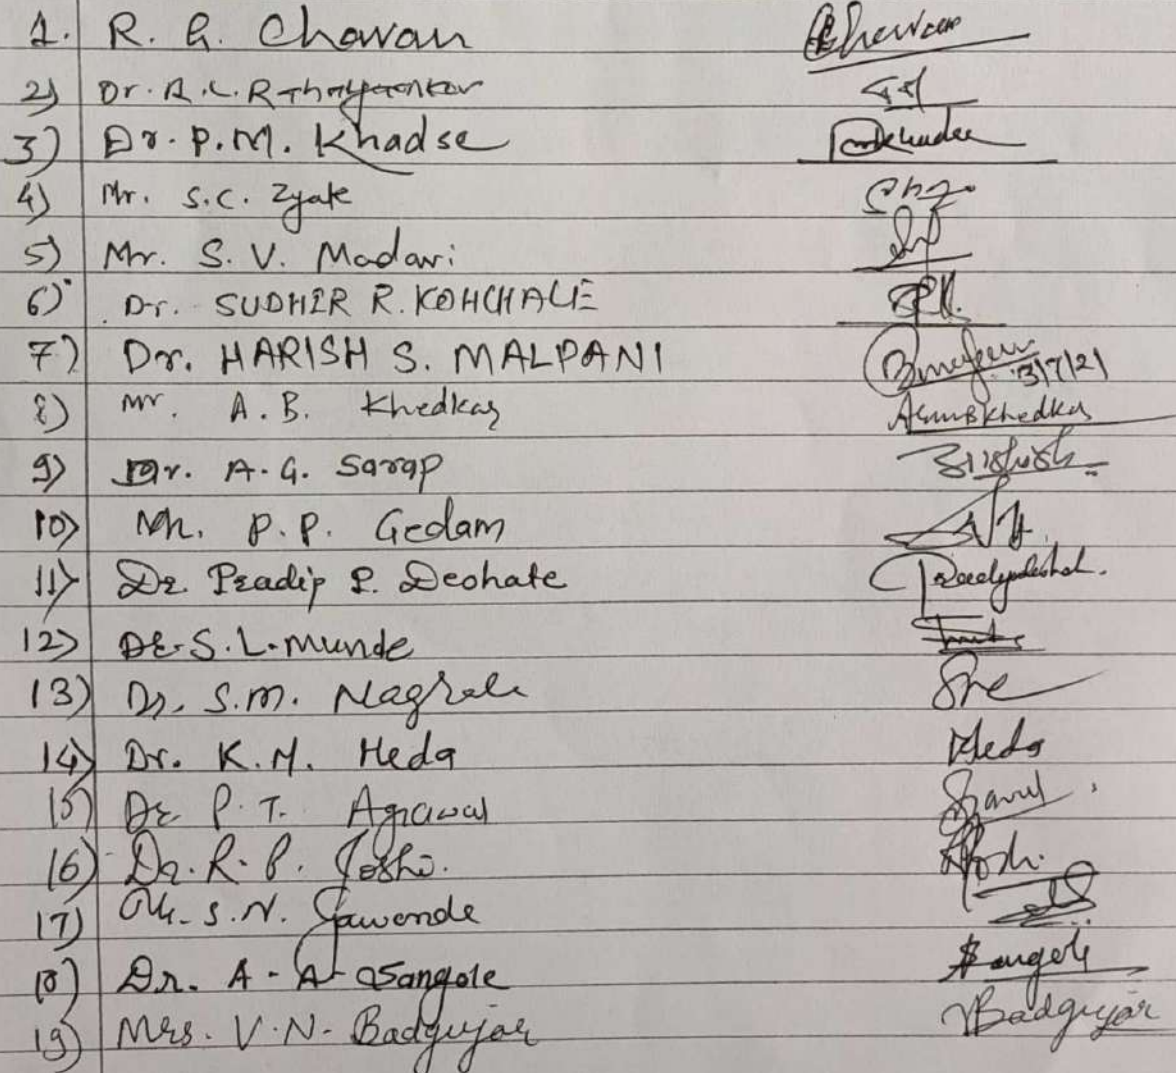 1. R. G. Chavan Chavan
2) Dr. A. L. Rathyaenkar
3) Dr. P. M. Khadse PMKhadse
4) Mr. S.C. Zyate
5) Mr. S. V. Madavi
6) Dr. SUDHIR R. KOHCHALE SRK.
7) Dr. HARISH S. MALPANI 3/7/21
8) Mr. A. B. Khedkar ArunBKhedkar
9) Mr. A. G. Sarap
10) Mr. P. P. Gedam
11) Dr. Pradip P. Deohate Pradipdeohate.
12) Dr. S. L. Munde
13) Dr. S. M. Nagrale
14) Dr. K. M. Heda Heda
15) Dr. P. T. Agrawal
16) Dr. R. B. Joshi. Joshi.
17) Mr. S. N. Gawande
18) Dr. A. A. Sangole Sangole
19) Mrs. V. N. Badgujar VBadgujar